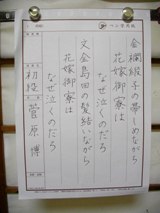 金襴緞子の帯しめながら
花嫁御寮は
なぜ泣くのだろ
文金島田の髪結いながら
花嫁御寮は
なぜ泣くのだろ
初段 菅原 博